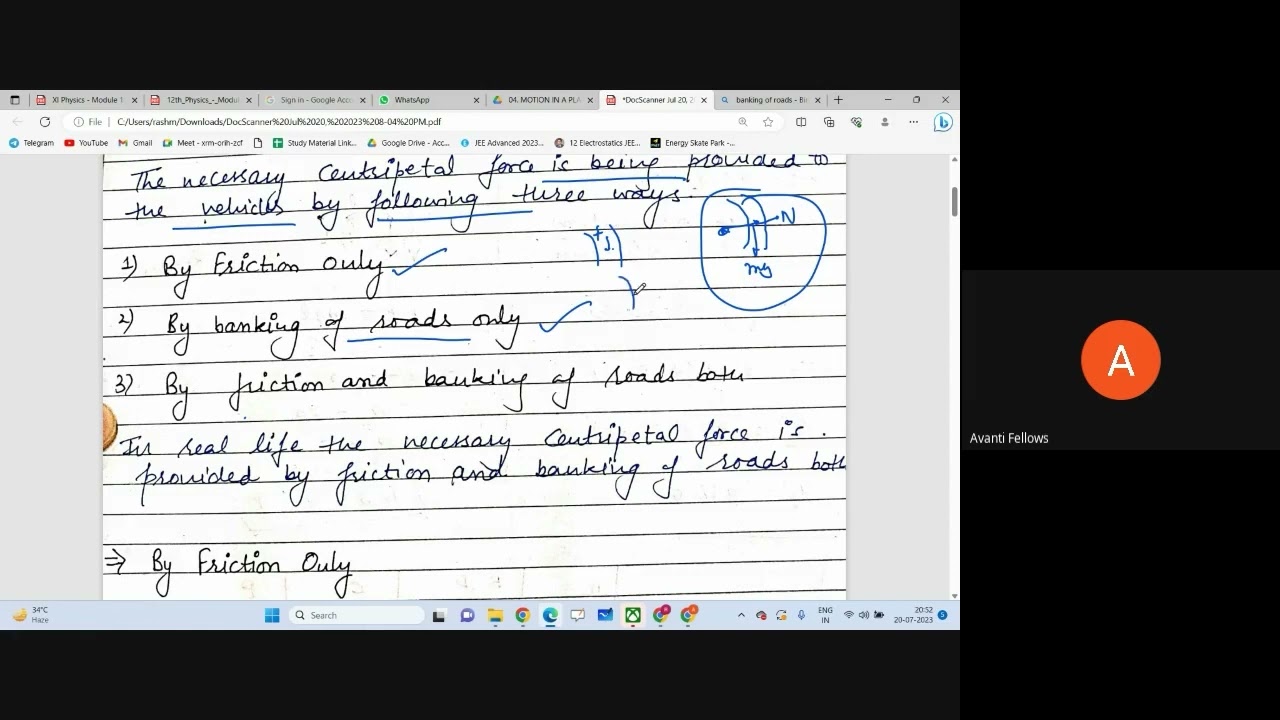 XI Physics - Module 1
12th_Physics_-_Modul
Sign in - Google Acco
WhatsApp
04. MOTION IN A PLA
*DocScanner Jul 20, 2
banking of roads - Bi
File C:/Users/rashm/Downloads/DocScanner%20Jul%2020,%202023%208-04%20PM.pdf
Telegram YouTube Gmail Meet - xrm-orih-zcf Study Material Link... Google Drive - Acc... JEE Advanced 2023... 12 Electrostatics JEE... Energy Skate Park -...
The necessary centripetal force is being provided to
the vehicles by following three ways.
N
mg
1) By Friction Only
2) By banking of roads only
3) By friction and banking of roads both
In real life the necessary centripetal force is.
provided by friction and banking of roads both
⇒ By Friction Only
A
Avanti Fellows
34°C
Haze
Search
ENG
IN
20:52
20-07-2023
5